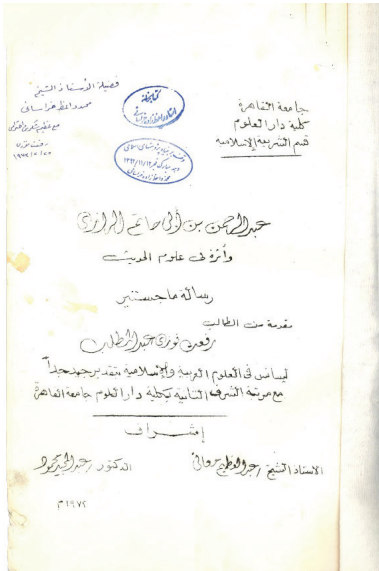 جامعة القاهرة
كلية دار العلوم
قسم الشريعة الإسلامية
فضيلة الأستاذ الشيخ
محمد واعظ زاده خراساني
مع
عبدالرحمن بن أبي حاتم الرازي
وأثره في علوم الحديث
رسالة ماجستير
مقدمة من الطالب
رفعت فوزي عبدالمطلب
ليسانس في العلوم العربية والإسلامية بتقدير جيد جداً
مع مرتبة الشرف الثانية بكلية دار العلوم جامعة القاهرة
إشراف
الأستاذ الشيخ / عبدالعظيم معاني
الدكتور / عبدالمجيد محمود
١٩٧٢م